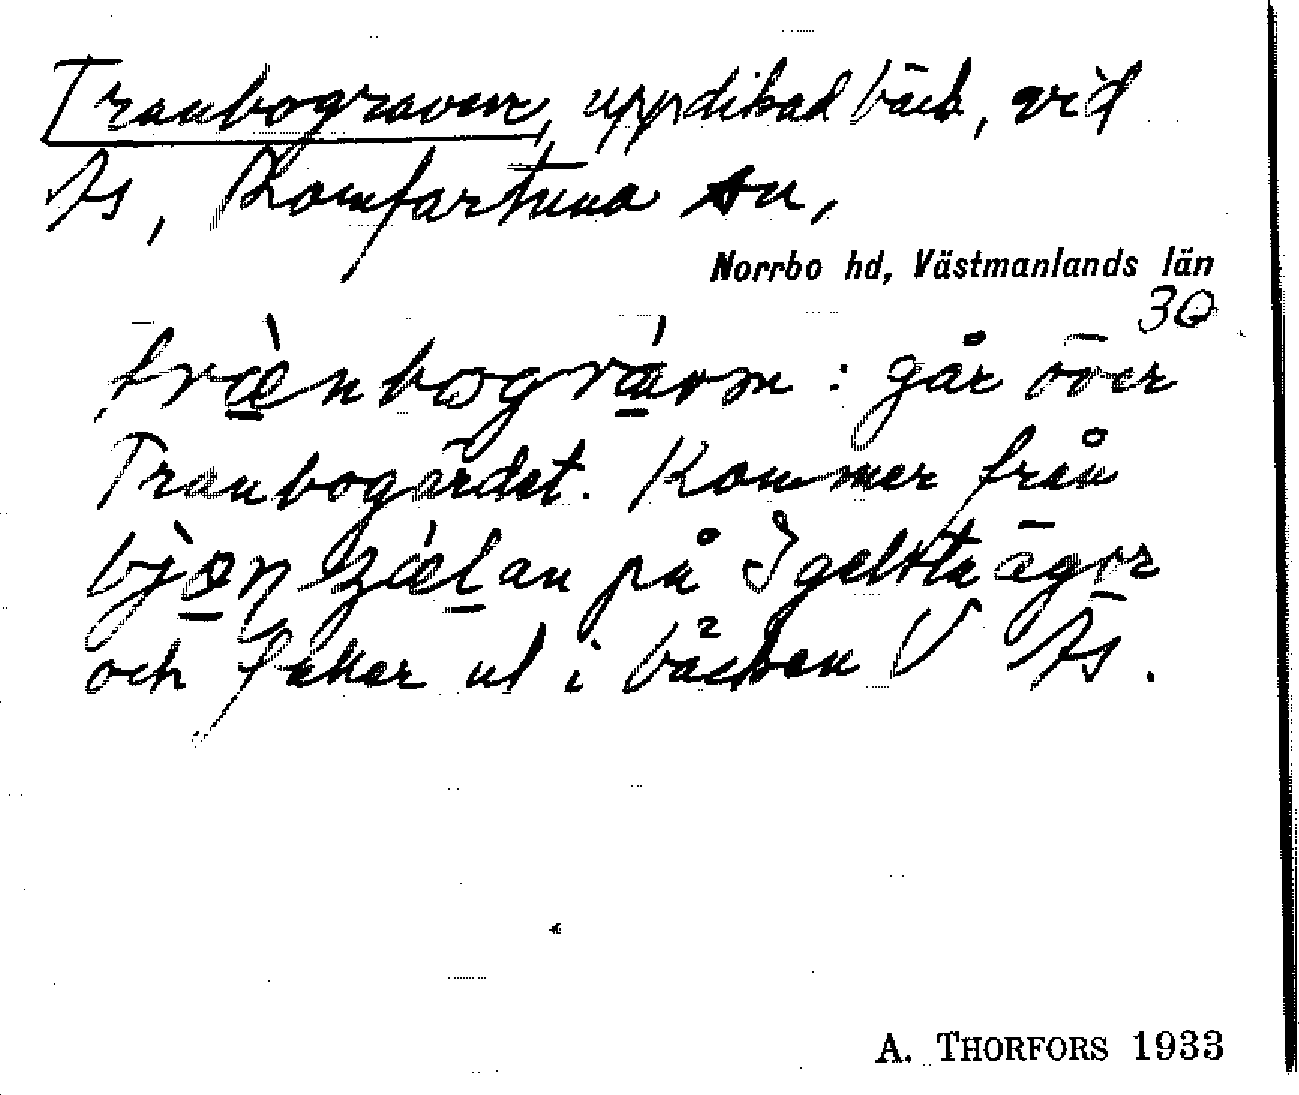 Tranbograven, uppdikad bäck, vid
Ås, Romfartuna sn,
Norrbo hd, Västmanlands län
30
: går över
Tranbogärdet. Kommer från
på Igeltäägor
och faller ut i bäcken V Ås.
A. THORFORS 1933